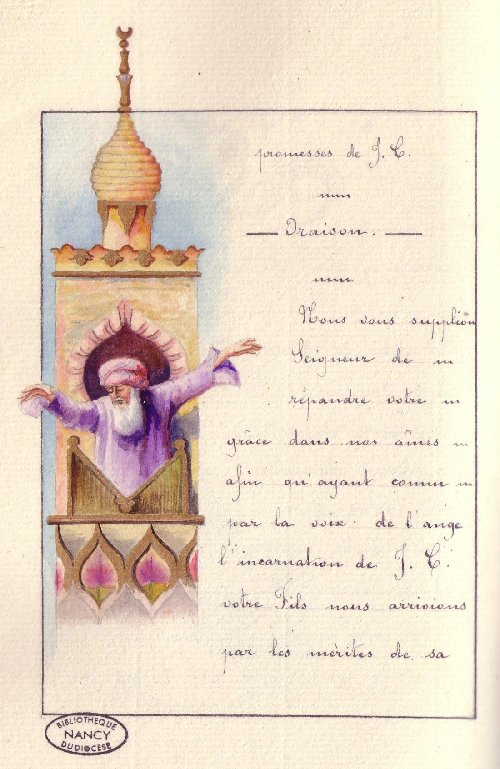 promesses de J. C.
Oraison.
Nous vous supplion
Seigneur de
répandre votre
grâce dans nos âmes
afin qu'ayant connu
par la voix de l'ange
l'incarnation de J. C.
votre Fils nous arrivions
par les mérites de sa
BIBLIOTHEQUE
NANCY
DU DIOCESE